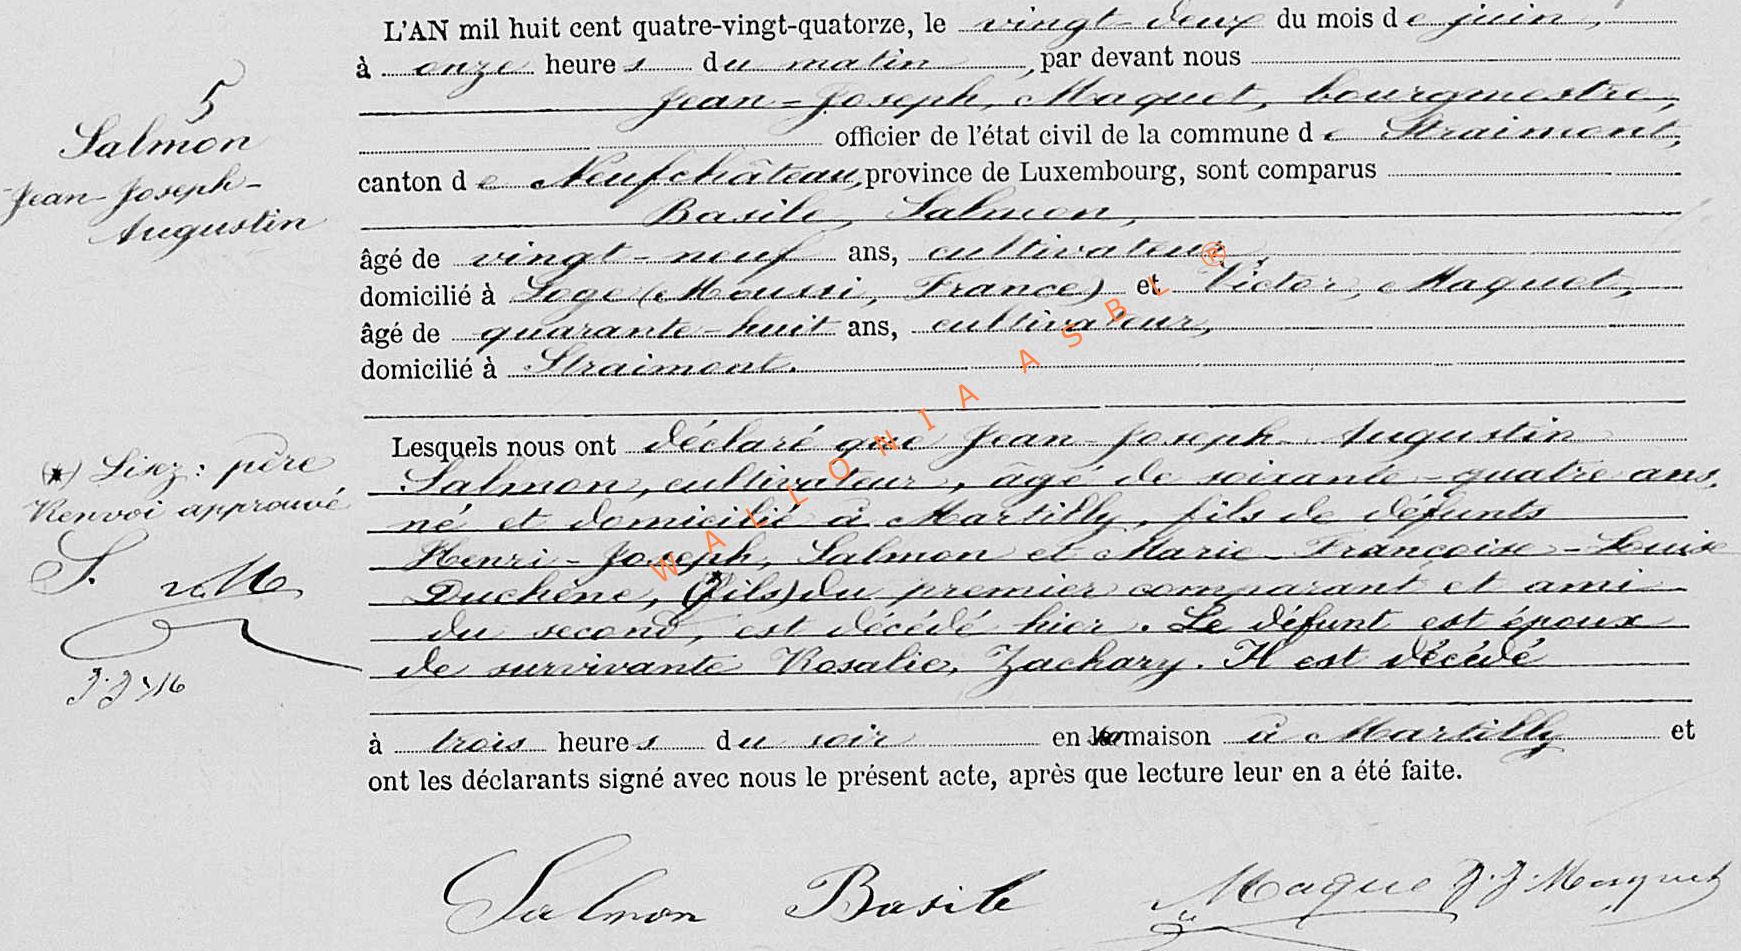 L'AN mil huit cent quatre-vingt-quatorze, le vingt-deux du mois de juin,
à onze heures du matin, par devant nous
Jean-Joseph, Maquet, bourgmestre,
officier de l'état civil de la commune de Straimont,
canton de Neufchâteau, province de Luxembourg, sont comparus
Basile, Salmon,
âgé de vingt-neuf ans, cultivateur,
domicilié à Loge (Moussi, France) et Victor, Maquet,
âgé de quarante-huit ans, cultivateur,
domicilié à Straimont.
Lesquels nous ont déclaré que Jean-Joseph-Augustin
Salmon, cultivateur, âgé de soixante-quatre ans,
né et domicilié à Martilly, fils de défunts
Henri-Joseph, Salmon et Marie-Françoise-Louise
Duchêne, (fils) du premier comparant et ami
du second, est décédé hier. Le défunt est époux
de survivante Rosalie, Zachary. Il est décédé
à trois heures du soir en maison à Martilly et
ont les déclarants signé avec nous le présent acte, après que lecture leur en a été faite.
Salmon Basile Maque J.J. Maquet
5
Salmon
Jean-Joseph-
Augustin
(*) Lisez: père
Renvoi approuvé
S. vM
J.J. M
WALLONIA ASBL ®